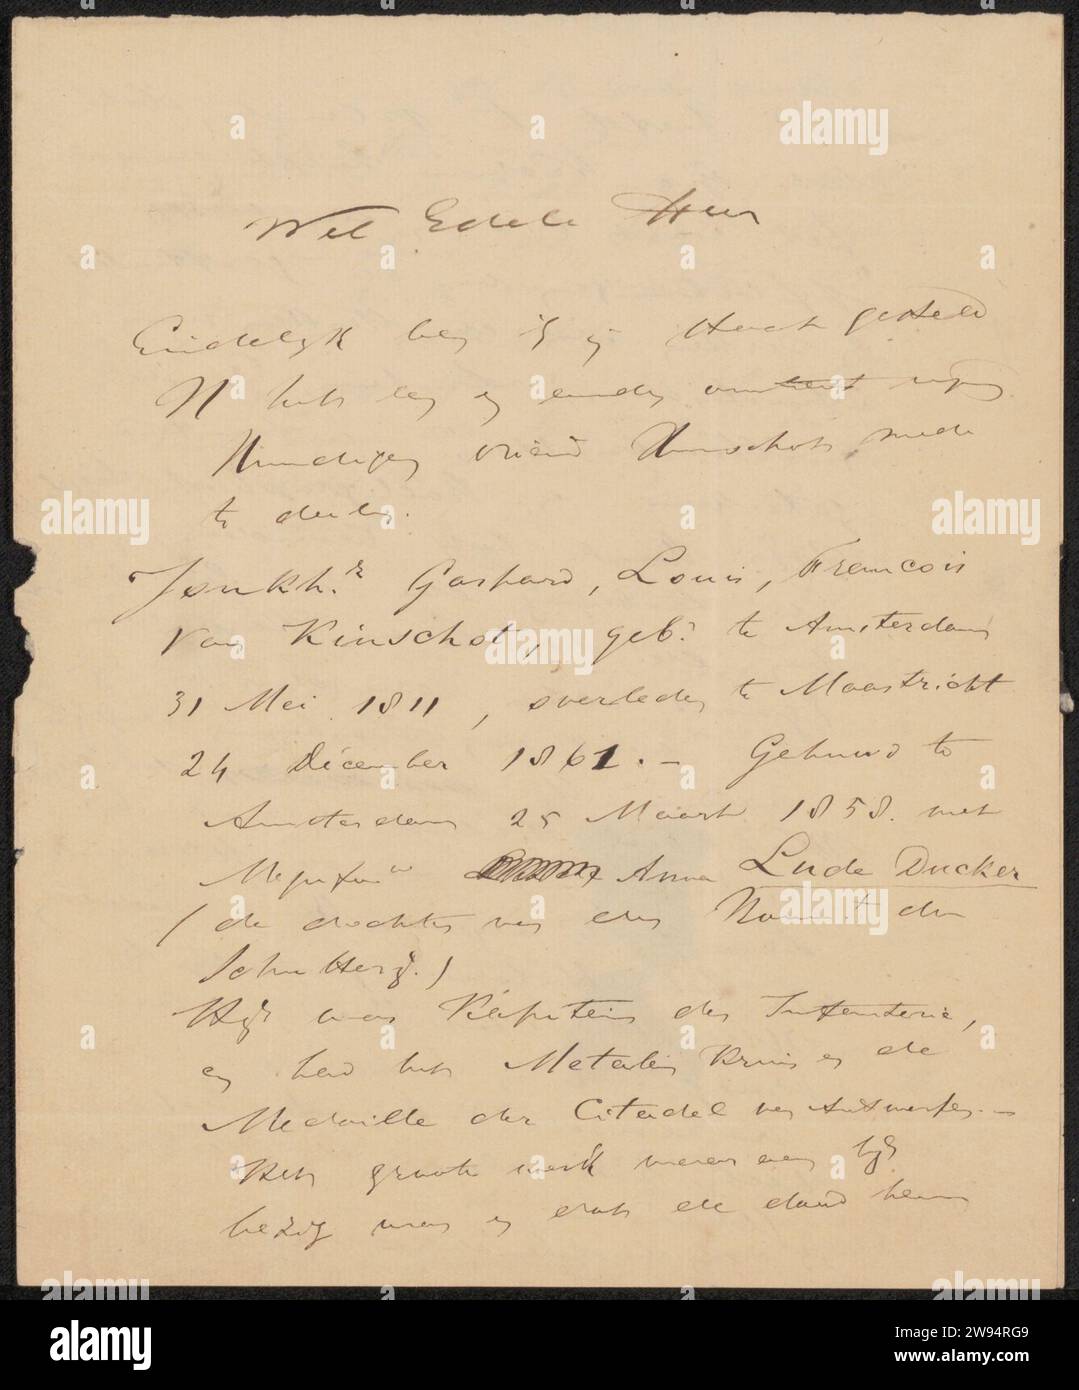 Wel Edele Heer
Eindelijk ben ik in staat gesteld
U het een en ander omtrent mijn
kundigen vriend Kinschot mede
te deelen.
Jonkh.r Gaspard, Louis, Francois
van Kinschot, geb: te Amsterdam
31 Mei 1811, overleden te Maastricht
24 December 1861. – Gehuwd te
Amsterdam 25 Maart 1858. met
Mejufw Anna Lude Ducker
(de dochter van den
Schutterij.)
Hij was Kapitein der Infanterie,
en had het Metalen Kruis en de
Medaille der Citadel van Antwerpen. –
Het groote werk waar aan hij
bezig was en dat de dood hem
alamy
alamy
alamy
alamy
alamy
alamy
Image ID: 2W94RG9
www.alamy.com